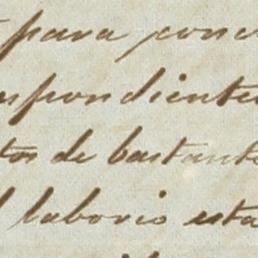 para conc
spondiente
tos de bastante
l laborio esta